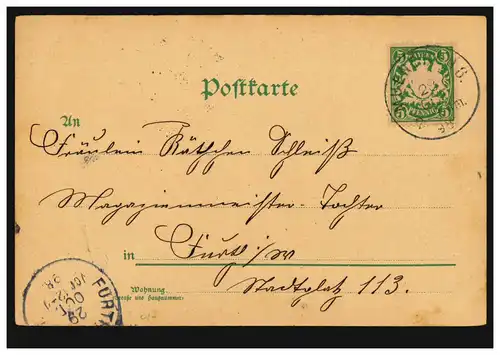 Postkarte
BAYERN
5 5
PFENNIG
An
Fräulein Käthchen Schleiß
Magazienmeister-Tochter
in Furth i/W
Wohnung
(Straße und Hausnummer)
Stadtplatz 113.
FURTH
29
OCT
98